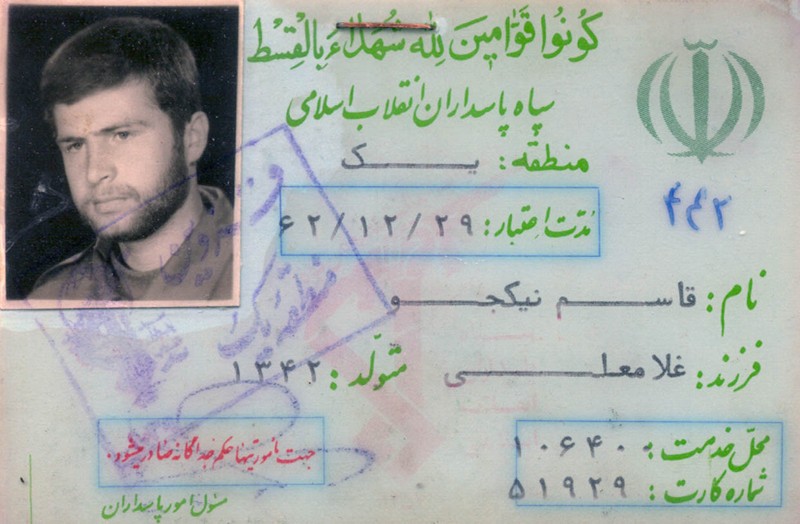 كُونُوا قَوّامينَ لِلّه شُهَداءَ بِالْقِسْط
سپاه پاسداران انقلاب اسلامی
منطقه: یک
۴۴۲
مُدّت اعتبار: ۶۲/۱۲/۲۹
نام: قاسم نیکجو
فرزند: غلامعلی
متولّد: ۱۳۴۲
محلّ خدمت: ۱۰۶۴۰۰
شماره کارت: ۵۱۹۲۹
جهت مأموریتها حکم جداگانه صادر میشود.
مسئول امور پاسداران
منطقه یک